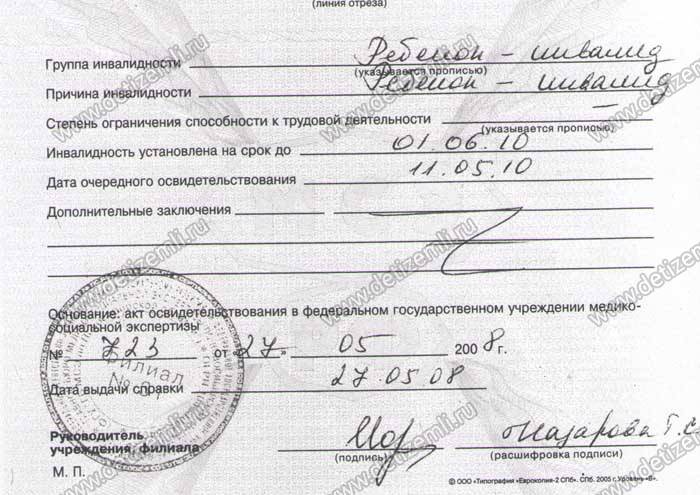 (линия отреза)
Группа инвалидности Ребенок - инвалид
(указывается прописью)
Причина инвалидности Ребенок - инвалид
Степень ограничения способности к трудовой деятельности —
(указывается прописью)
Инвалидность установлена на срок до 01.06.10
Дата очередного освидетельствования 11.05.10
Дополнительные заключения
Основание: акт освидетельствования в федеральном государственном учреждении медико-
социальной экспертизы
№ 723 от «27» 05 2008 г.
филиал
№
Дата выдачи справки 27.05.08
Руководитель
учреждения, филиала
(подпись)
Назарова Т.С.
(расшифровка подписи)
М. П.
© ООО «Типография «Еврокопия-2 СПб». СПб. 2005 г. Уровень «В».
www.detizemli.ru